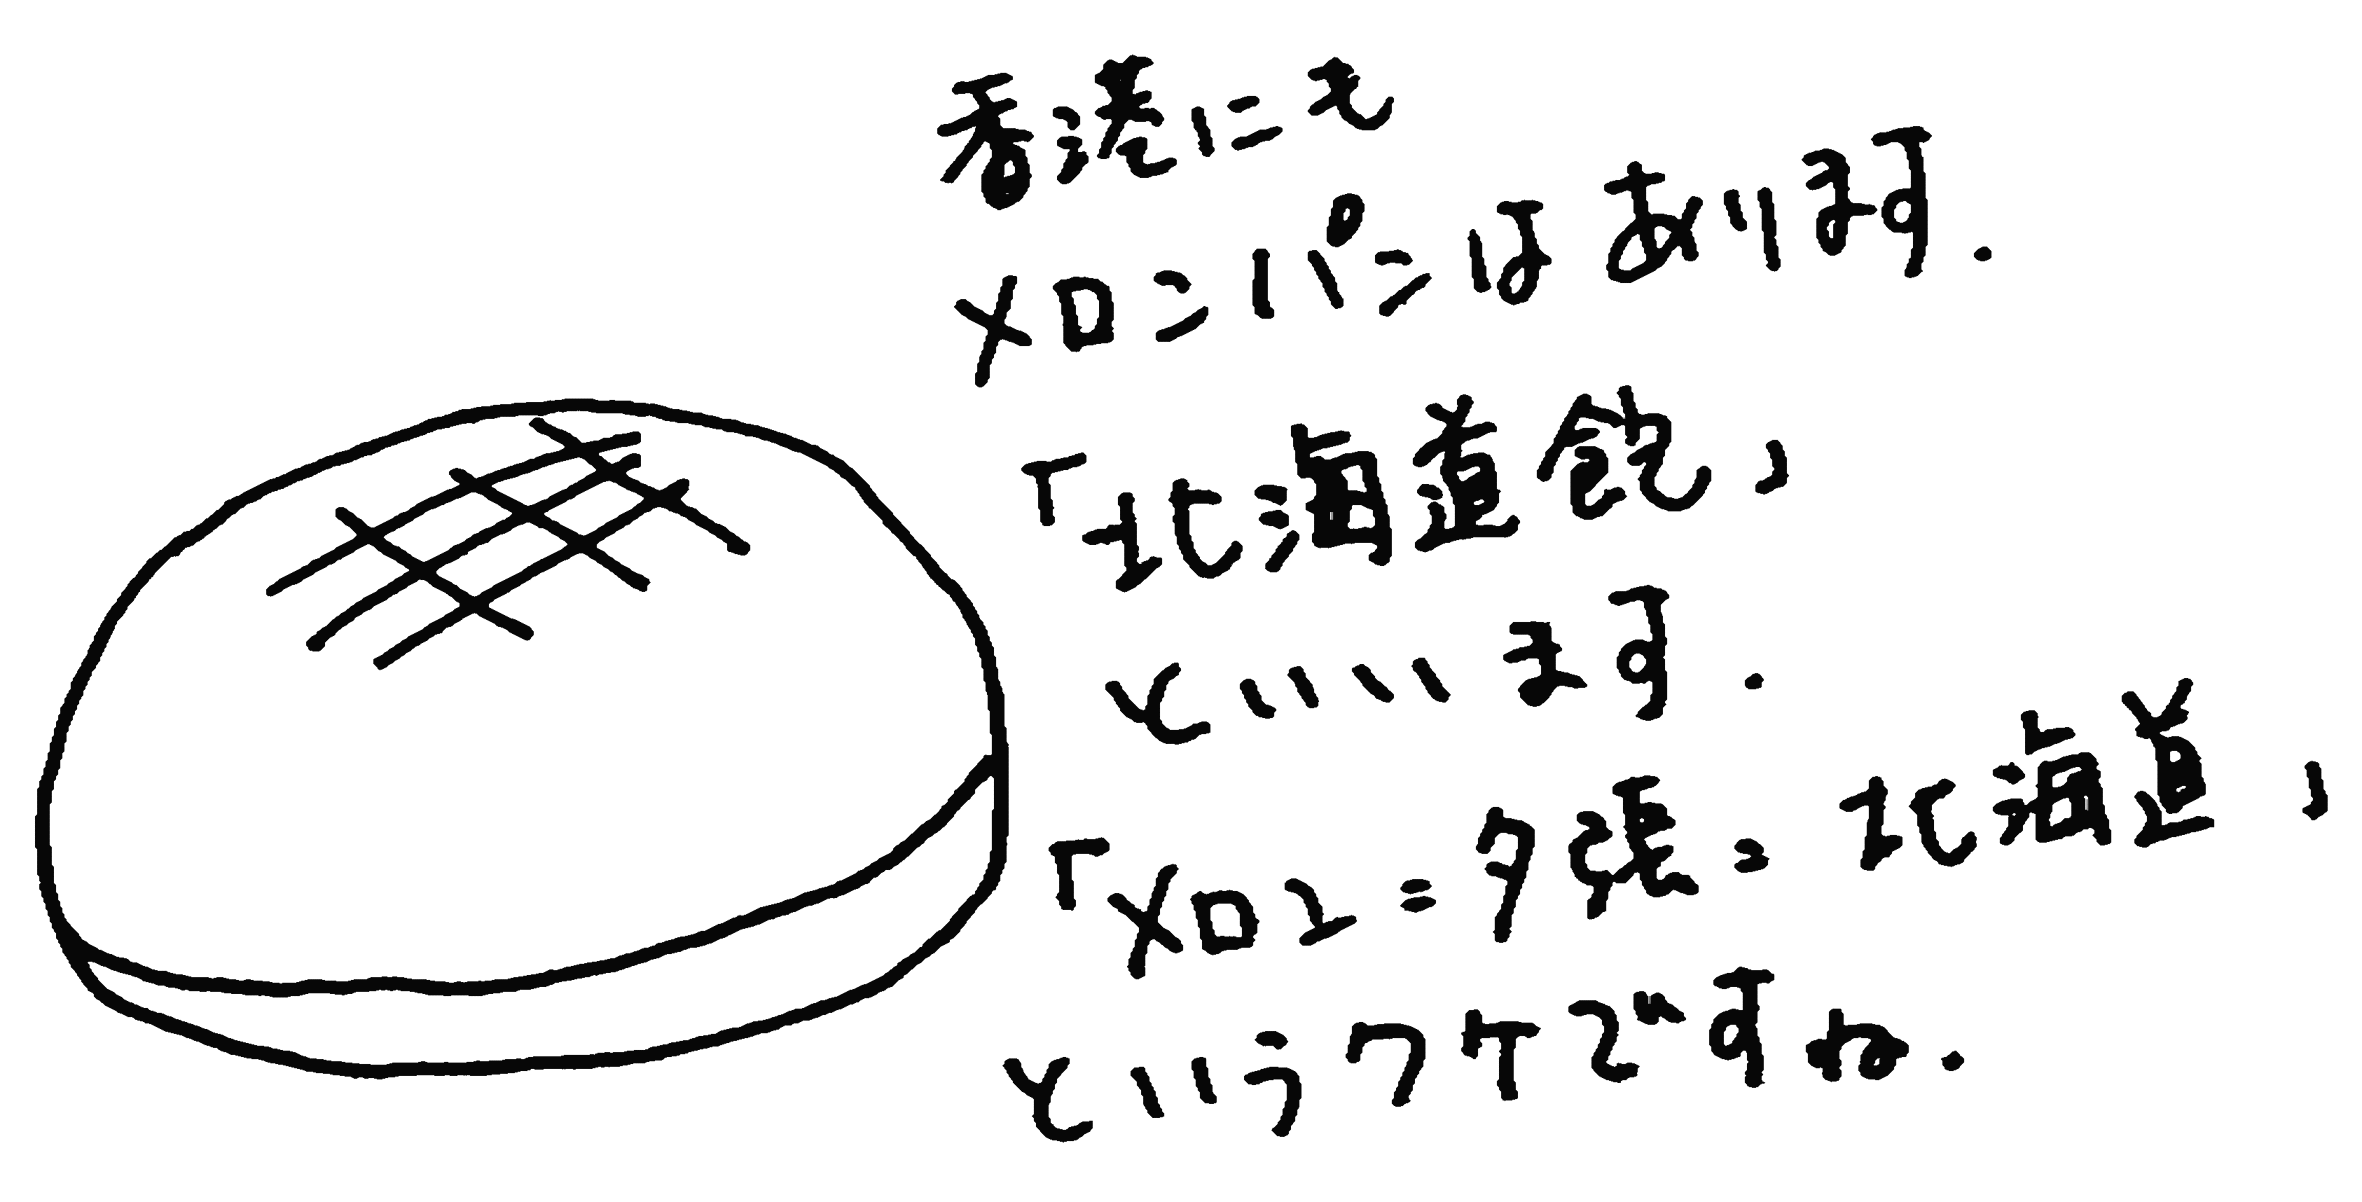 香港にも
メロンパンはあります.
「北海道飽」
といいます.
「メロン=夕張=北海道」
というワケですね.